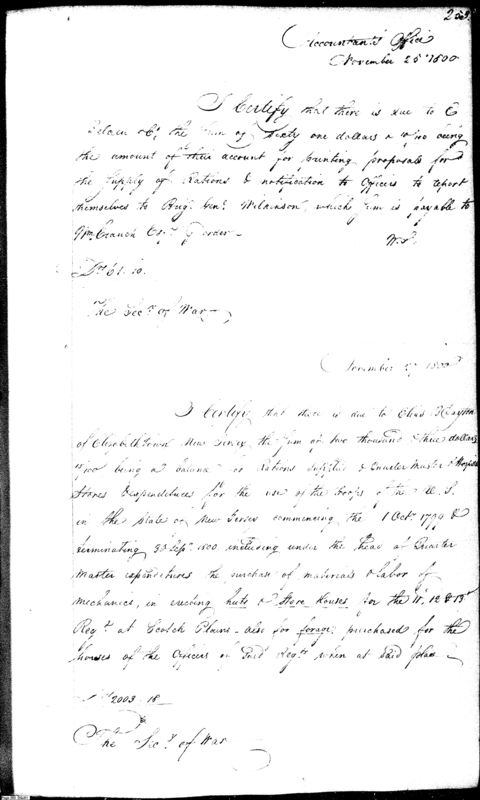 253
Accountant's Office
November 25th 1800
I Certify that there is due to C
Belden & Co. the Sum of Sixty one dollars & 10/100 being
the amount of their account for printing proposals for
the supply of Rations & notification to Officers to report
themselves to Brig. Genl. Wilkinson, which sum is payable to
Wm. Cranch Esqr. order
W.S.
Drs 61. 10.
The Secy. of War
November 1800
I Certify that there is due to Elias B Dayton
of Elizabeth Town New Jersey the sum of two thousand & three dollars
/100 being a balance for Rations supplied & Quarter Master & Hospital
Stores & expenditures for the use of the troops of the U.S.
in the State of New Jersey commencing the 1 Octr. 1799 &
terminating 30 Sept. 1800 including under the head of Quarter
Master expenditures the purchase of materials & labor of
mechanics, in erecting huts & Store Houses for the 11, 12 & 13th
Regt. at Scotch Plains - also for forage purchased for the
horses of the Officers of said Regts when at said place
2003. 18
The Secy. of War